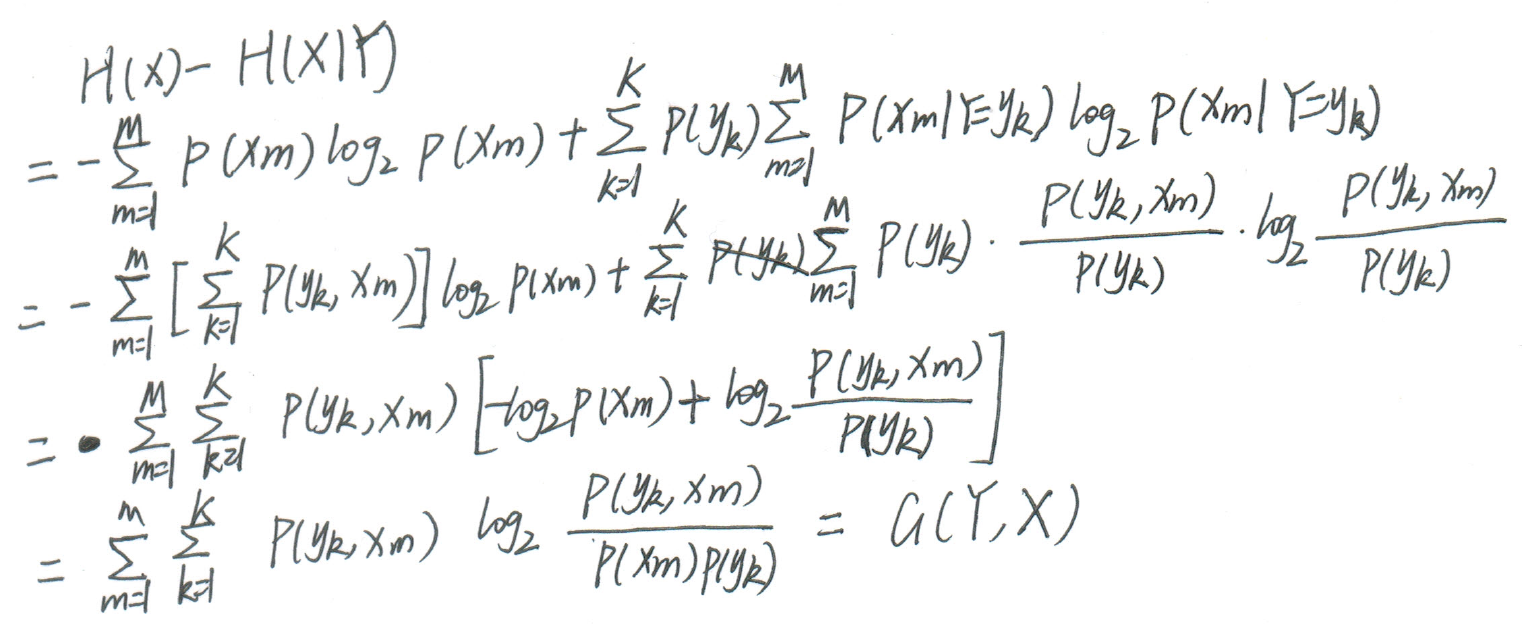 H(X) - H(X|Y)
= - \sum_{m=1}^{M} P(X_m) \log_2 P(X_m) + \sum_{k=1}^{K} P(y_k) \sum_{m=1}^{M} P(X_m|Y=y_k) \log_2 P(X_m|Y=y_k)
= - \sum_{m=1}^{M} [\sum_{k=1}^{K} P(y_k, X_m)] \log_2 P(X_m) + \sum_{k=1}^{K} \sum_{m=1}^{M} P(y_k) \cdot \frac{P(y_k, X_m)}{P(y_k)} \cdot \log_2 \frac{P(y_k, X_m)}{P(y_k)}
= \sum_{m=1}^{M} \sum_{k=1}^{K} P(y_k, X_m) [-\log_2 P(X_m) + \log_2 \frac{P(y_k, X_m)}{P(y_k)}]
= \sum_{m=1}^{M} \sum_{k=1}^{K} P(y_k, X_m) \log_2 \frac{P(y_k, X_m)}{P(X_m)P(y_k)} = G(Y, X)